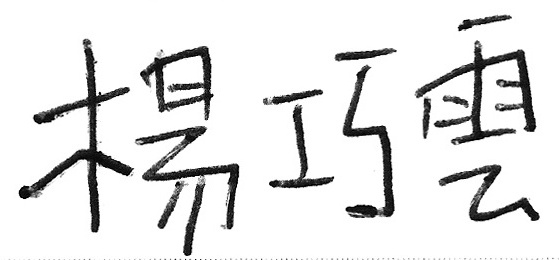 楊巧雲